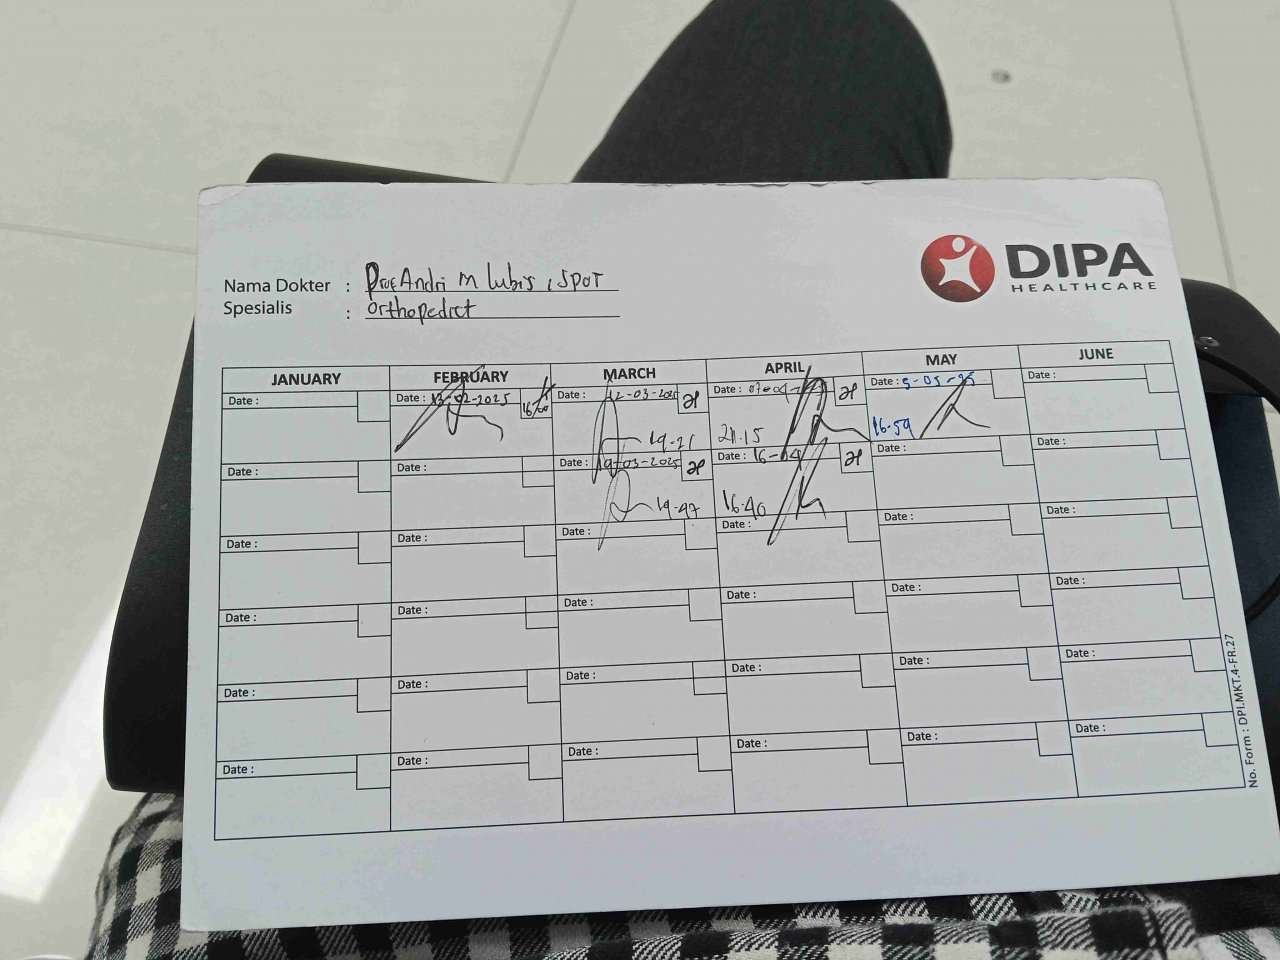 DIPA
HEALTHCARE
Nama Dokter : Prof Andri M Lubis, SPOT
Spesialis : Orthopedict
JANUARY FEBRUARY MARCH APRIL MAY JUNE
Date : Date : 13-02-2025 Date : 12-03-2025 Date : 07-04- Date : 5-05-25 Date :
19-21 21.15 16-59
Date : Date : Date : 19-03-2025 Date : 16-04 Date : Date :
19-47 16.40
Date : Date : Date : Date : Date : Date :
Date : Date : Date : Date : Date : Date :
Date : Date : Date : Date : Date : Date :
Date : Date : Date : Date : Date : Date :
No. Form : DPI.MKT.4-FR.27